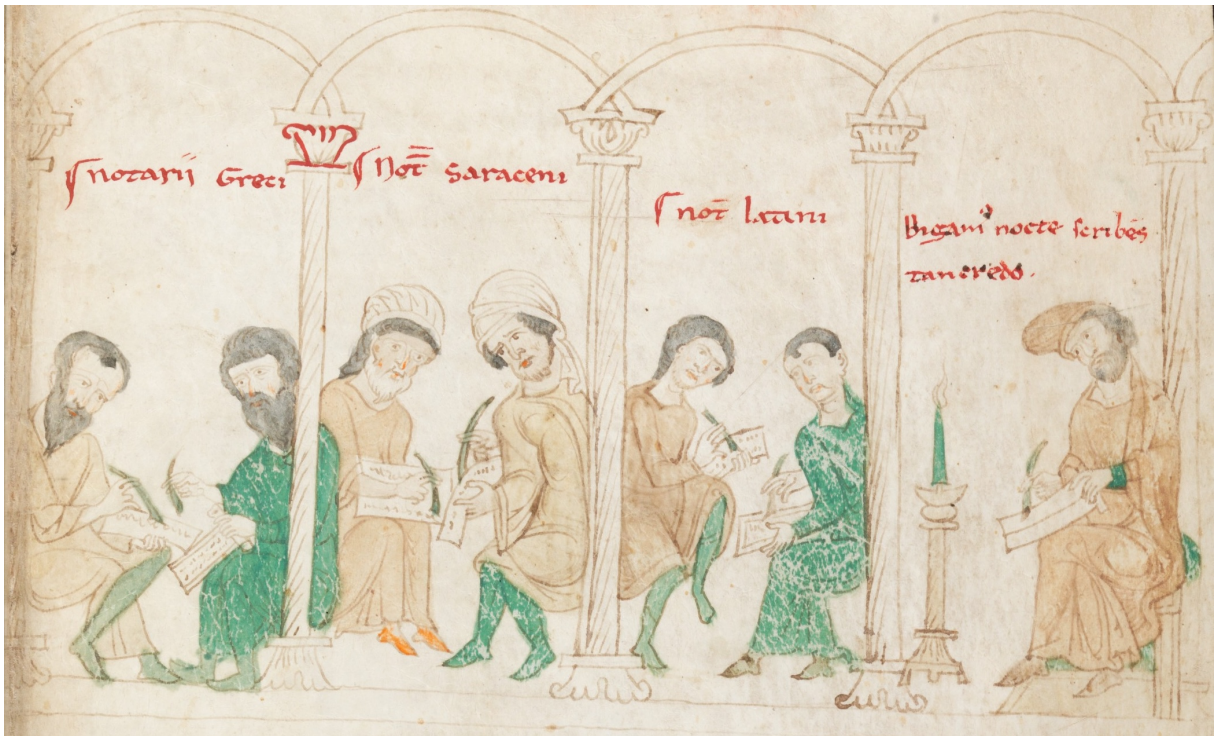 notarii Greci
Not̄ Saraceni
not̄ latini
Bigam᾽ nocte scribēs
tancredo.